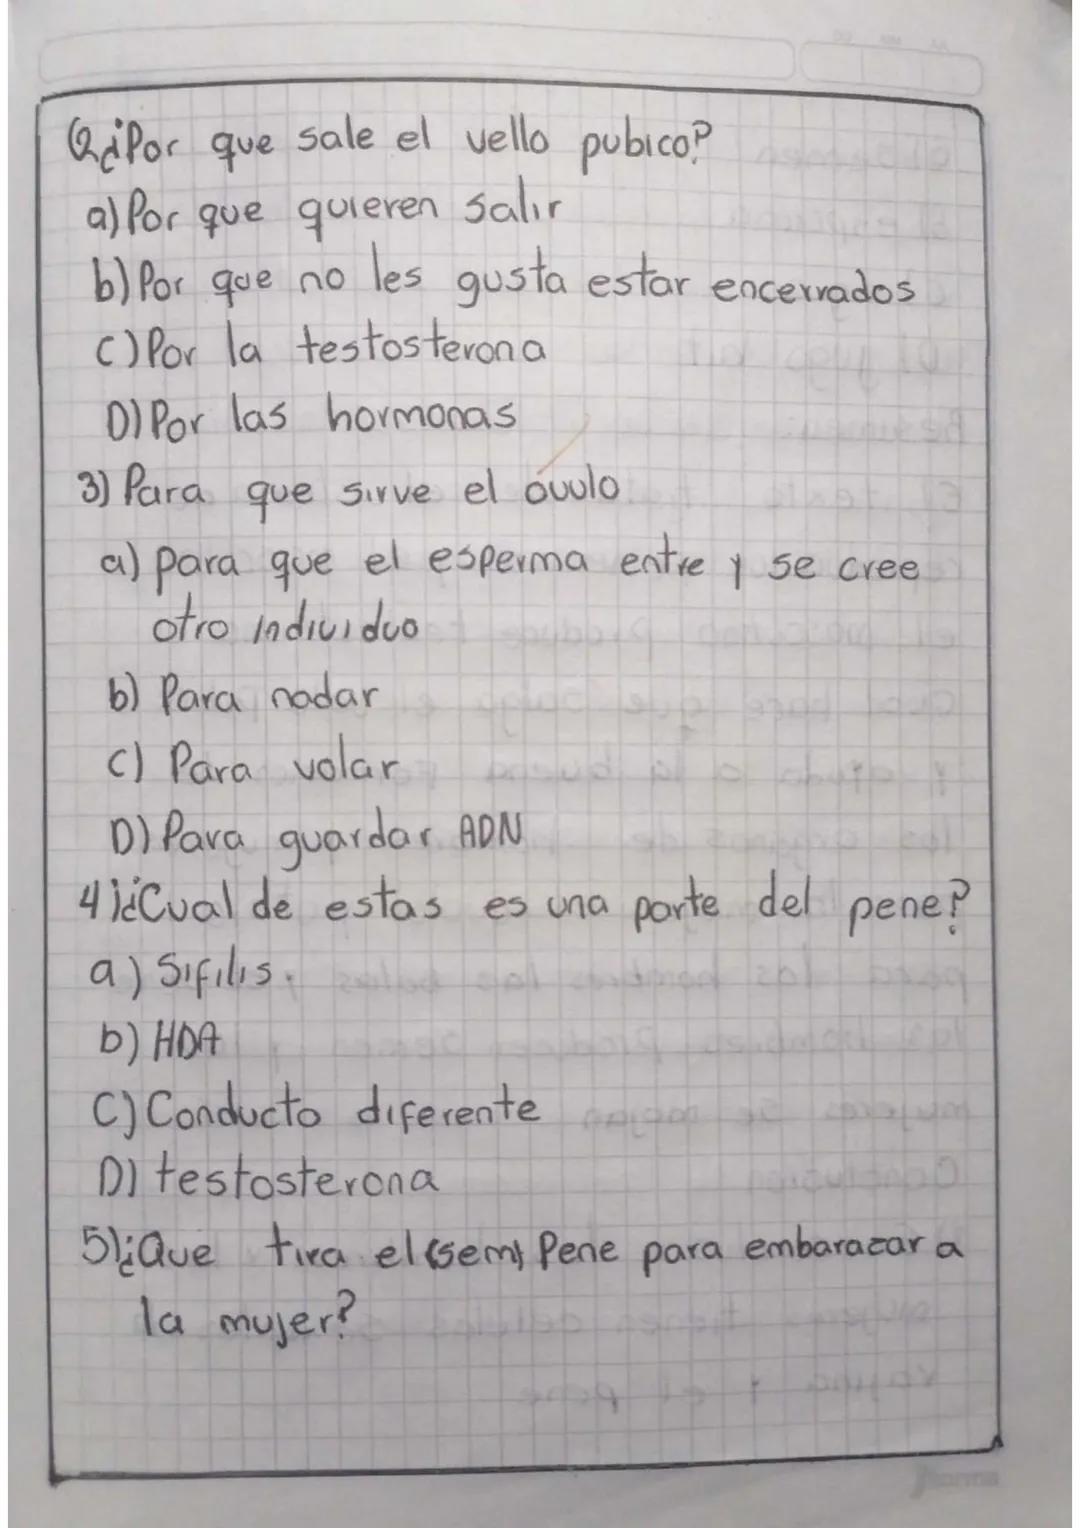 2¿Por que sale el vello pubico?
a) Por que quieren salir
b) Por que no les gusta estar encerrados
C) Por la testosterona
D) Por las hormonas
3) Para que sirve el óvulo
a) para que el esperma entre y se cree
otro individuo
b) Para nadar
C) Para volar
D) Para guardar ADN
4)¿Cual de estas es una parte del pene?
a) Sifilis.
b) HDA
C) Conducto diferente
D) testosterona
5)¿Que tira el (sem) Pene para embarazar a
la mujer?
norma